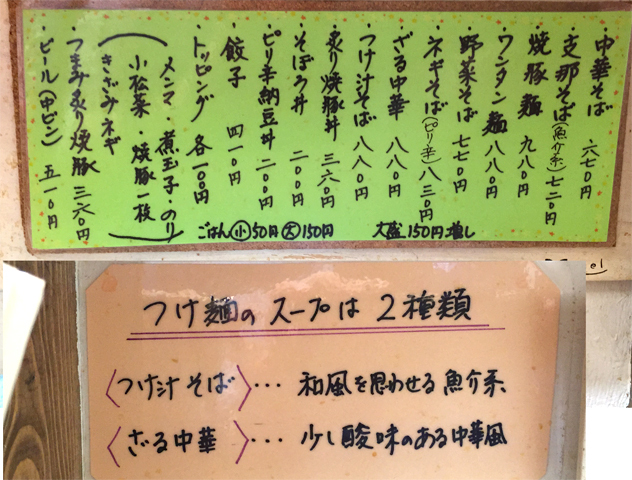 ・中華そば 六七〇円
・支那そば(魚介系)七二〇円
・焼豚麺 九八〇円
・ワンタン麺 八八〇円
・野菜そば 七七〇円
・ネギそば(ピリ辛)八三〇円
・ざる中華 八八〇円
・つけ汁そば 八八〇円
・炙り焼豚丼 三六〇円
・そぼろ丼 二〇〇円
・ピリ辛納豆丼 二〇〇円
・餃子 四一〇円
・トッピング 各一〇〇円
(メンマ・煮玉子・のり
小松菜・焼豚一枚
きざみネギ)
・つまみ炙り焼豚 三六〇円
・ビール(中ビン) 五一〇円
ごはん小50円大150円 大盛150円増し
つけ麺のスープは2種類
〈つけ汁そば〉・・・ 和風を思わせる魚介系
〈ざる中華〉・・・ 少し酸味のある中華風